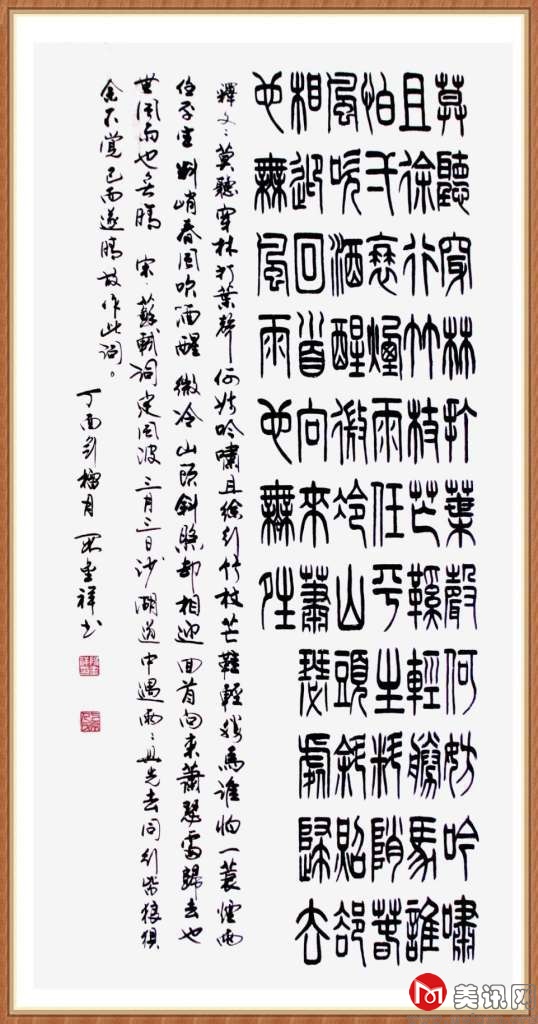 莫聽穿林打葉聲何妨吟嘯
且徐行竹杖芒鞵輕勝馬誰
怕一蓑煙雨任平生料陗春
風吹酒醒微冷山頭斜照卻
相迎回首向來蕭瑟處歸去
也無風雨也無晴
釋文：莫聽穿林打葉聲 何妨吟嘯且徐行 竹杖芒鞋輕勝馬 誰怕一蓑煙雨
任平生 料峭春風吹酒醒 微冷 山頭斜照却相迎 回首向來蕭瑟處歸去也
無風雨也無晴 宋·蘇軾詞定風波 三月三日沙湖道中遇雨：具先去同行皆狼狽
余不覺 已而遂晴故作此詞。
丁酉 榴月 祥書
美讯网